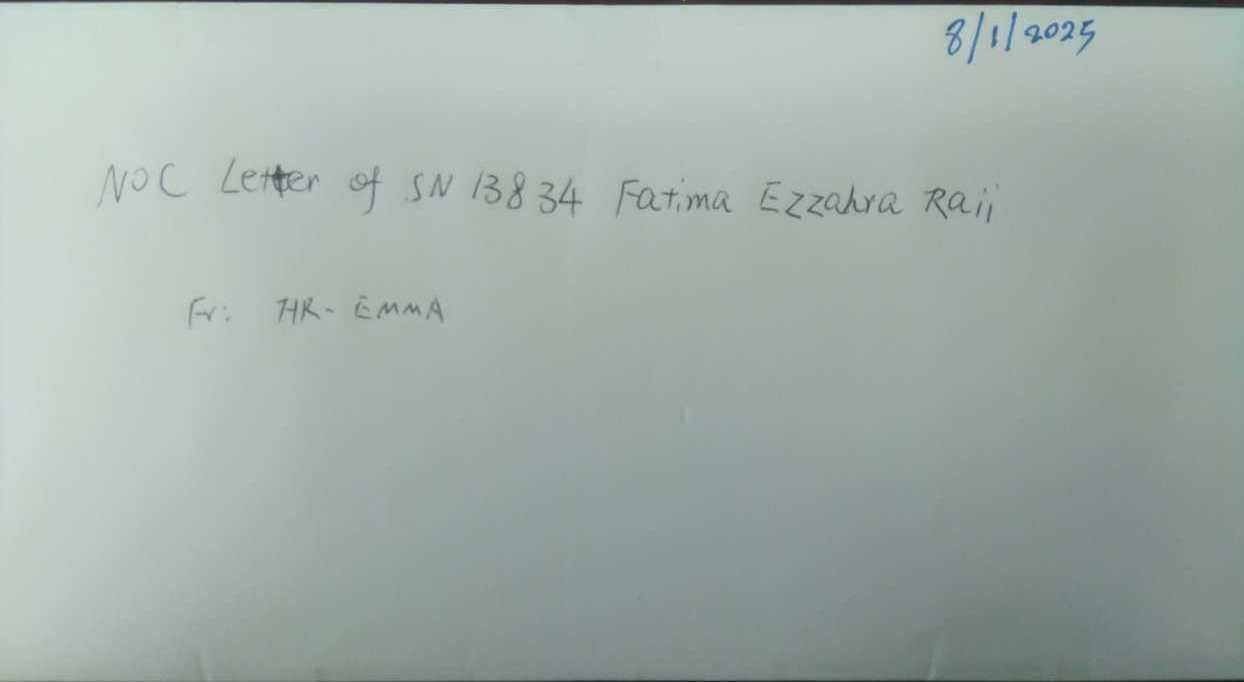 8/1/2025
NOC Letter of SN 13834 Fatima Ezzahra Raii
Fr: HR- EMMA